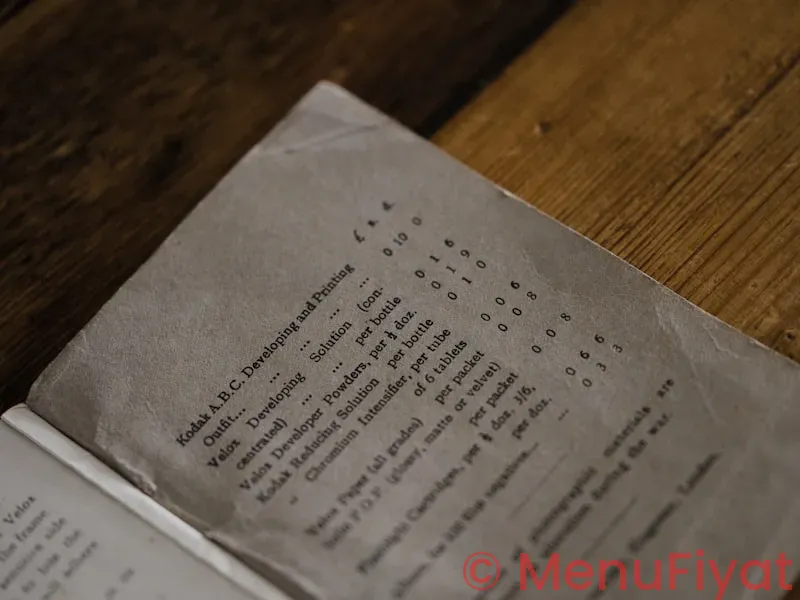 £ s. d.
Kodak A.B.C. Developing and Printing
Outfit... ... ... ... ... 0 10 0
Velox Developing Solution (con-
centrated) ... ... per bottle 0 1 6
Velox Developer Powders, per ½ doz. 0 1 9
Kodak Reducing Solution per bottle 0 1 0
„ Chromium Intensifier, per tube
of 6 tablets 0 0 6
Velox Paper (all grades) per packet 0 0 8
Solio P.O.P. (glossy, matte or velvet)
per packet 0 0 8
Flashlight Cartridges, per ½ doz. 3/6,
per doz. 0 6 6
Album, for film negatives... ... 0 3 3
of photographic materials are
during the war.
London.
Velox
the frame
sensitive side
to lose the
adhere
or
© MenuFiyat